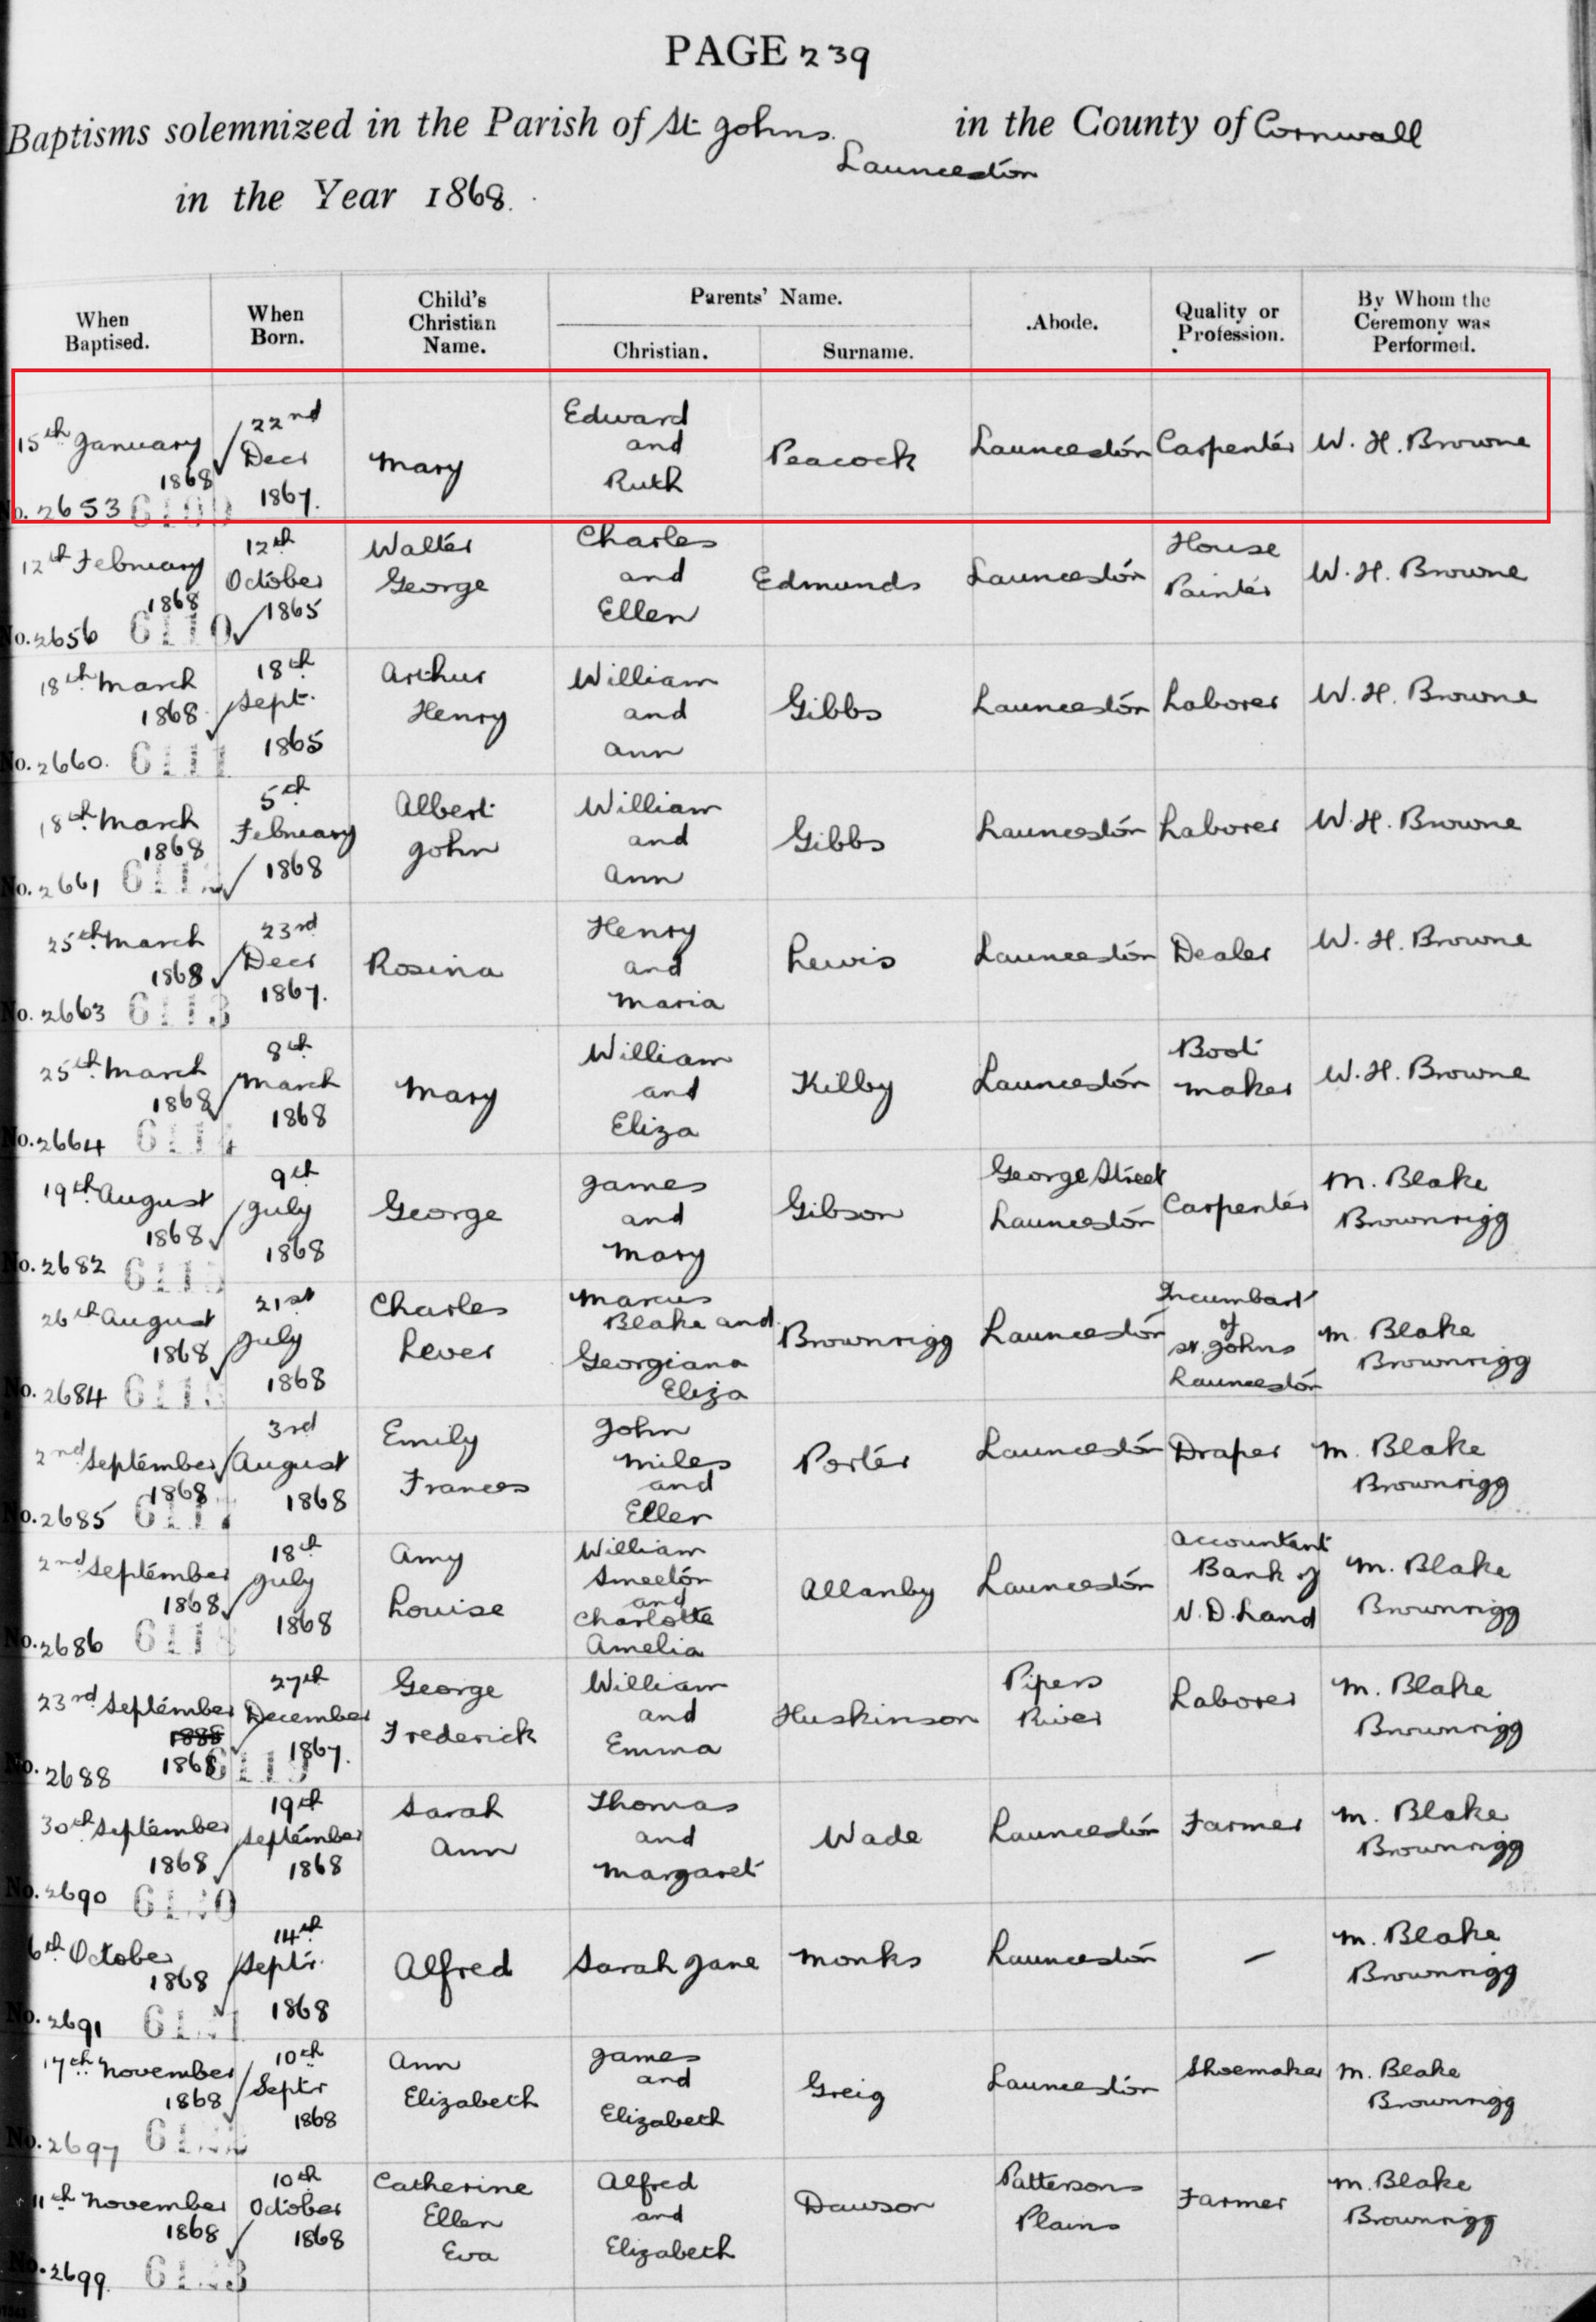 PAGE 239
Baptisms solemnized in the Parish of St Johns Launceston in the County of Cornwall
in the Year 1868.
When Baptised. When Born. Child's Christian Name. Parents' Name. Christian. Surname. Abode. Quality or Profession. By Whom the Ceremony was Performed.
15th January 1868 No. 2653 22nd Decr 1867. Mary Edward and Ruth Peacock Launceston Carpenter W. H. Browne
12th February 1868 No. 2656 6110 12th October 1865 Walter George Charles and Ellen Edmunds Launceston House Painter W. H. Browne
18th March 1868 No. 2660. 6111 18th Sept. 1865 Arthur Henry William and Ann Gibbs Launceston Laborer W. H. Browne
18th March 1868 No. 2661 5th February 1868 Albert John William and Ann Gibbs Launceston Laborer W. H. Browne
25th March 1868 No. 2663 6113 23rd Decr 1867. Rosina Henry and Maria Lewis Launceston Dealer W. H. Browne
25th March 1868 No. 2664 8th March 1868 Mary William and Eliza Kilby Launceston Boot maker W. H. Browne
19th August 1868 No. 2682 9th July 1868 George James and Mary Gibson George Street Launceston Carpenter M. Blake Brownrigg
26th August 1868 No. 2684 21st July 1868 Charles Lever Marcus Blake and Georgiana Eliza Brownrigg Launceston Incumbant of St. Johns Launceston M. Blake Brownrigg
2nd September 1868 No. 2685 3rd August 1868 Emily Frances John Miles and Ellen Porter Launceston Draper M. Blake Brownrigg
2nd September 1868 No. 2686 18th July 1868 Amy Louise William Smeeton and Charlotte Amelia Allanby Launceston Accountant Bank of V. D. Land M. Blake Brownrigg
23rd September 1868 No. 2688 6119 27th December 1867. George Frederick William and Emma Huskinson Pipers River Laborer M. Blake Brownrigg
30th September 1868 No. 2690 19th September 1868 Sarah Ann Thomas and Margaret Wade Launceston Farmer M. Blake Brownrigg
6th October 1868 No. 2691 14th Septr. 1868 Alfred Sarah Jane Monks Launceston — M. Blake Brownrigg
17th November 1868 No. 2697 10th Septr 1868 Ann Elizabeth James and Elizabeth Greig Launceston Shoemaker M. Blake Brownrigg
11th November 1868 No. 2699 10th October 1868 Catherine Ellen Eva Alfred and Elizabeth Dawson Pattersons Plains Farmer M. Blake Brownrigg